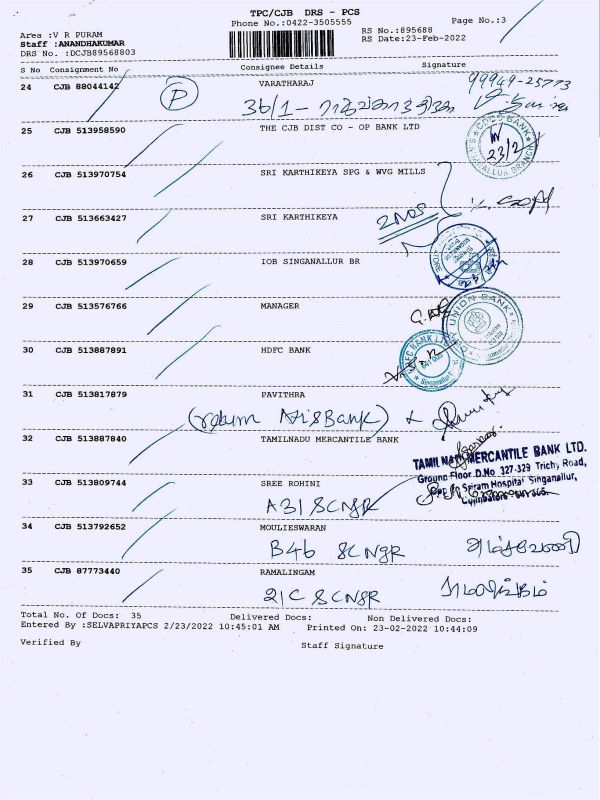 TPC/CJB DRS - PCS
Phone No.:0422-3505555
Page No.:3
Area :V R PURAM
Staff :ANANDHAKUMAR
DRS No. :DCJB89568803
RS No.:895688
RS Date:23-Feb-2022
S No Consignment No Consignee Details Signature
24 CJB 88044142 VARATHARAJ
P
99949-25773
36/1 -
25 CJB 513958590 THE CJB DIST CO - OP BANK LTD
23/2
26 CJB 513970754 SRI KARTHIKEYA SPG & WVG MILLS
27 CJB 513663427 SRI KARTHIKEYA
2 NOS
28 CJB 513970659 IOB SINGANALLUR BR
29 CJB 513576766 MANAGER
UNION BANK
30 CJB 513887891 HDFC BANK
HDFC BANK LTD
Singanallur
31 CJB 513817879 PAVITHRA
(return Axis Bank)
32 CJB 513887840 TAMILNADU MERCANTILE BANK
TAMILNAD MERCANTILE BANK LTD.
Ground Floor D.No 327-329 Trichy Road,
Opp to Sriram Hospital Singanallur,
33 CJB 513809744 SREE ROHINI
A31 SCNGR
34 CJB 513792652 MOULIESWARAN
B46 SCNGR
35 CJB 87773440 RAMALINGAM
21C SCNGR
Total No. Of Docs: 35 Delivered Docs: Non Delivered Docs:
Entered By :SELVAPRIYAPCS 2/23/2022 10:45:01 AM Printed On: 23-02-2022 10:44:09
Verified By Staff Signature